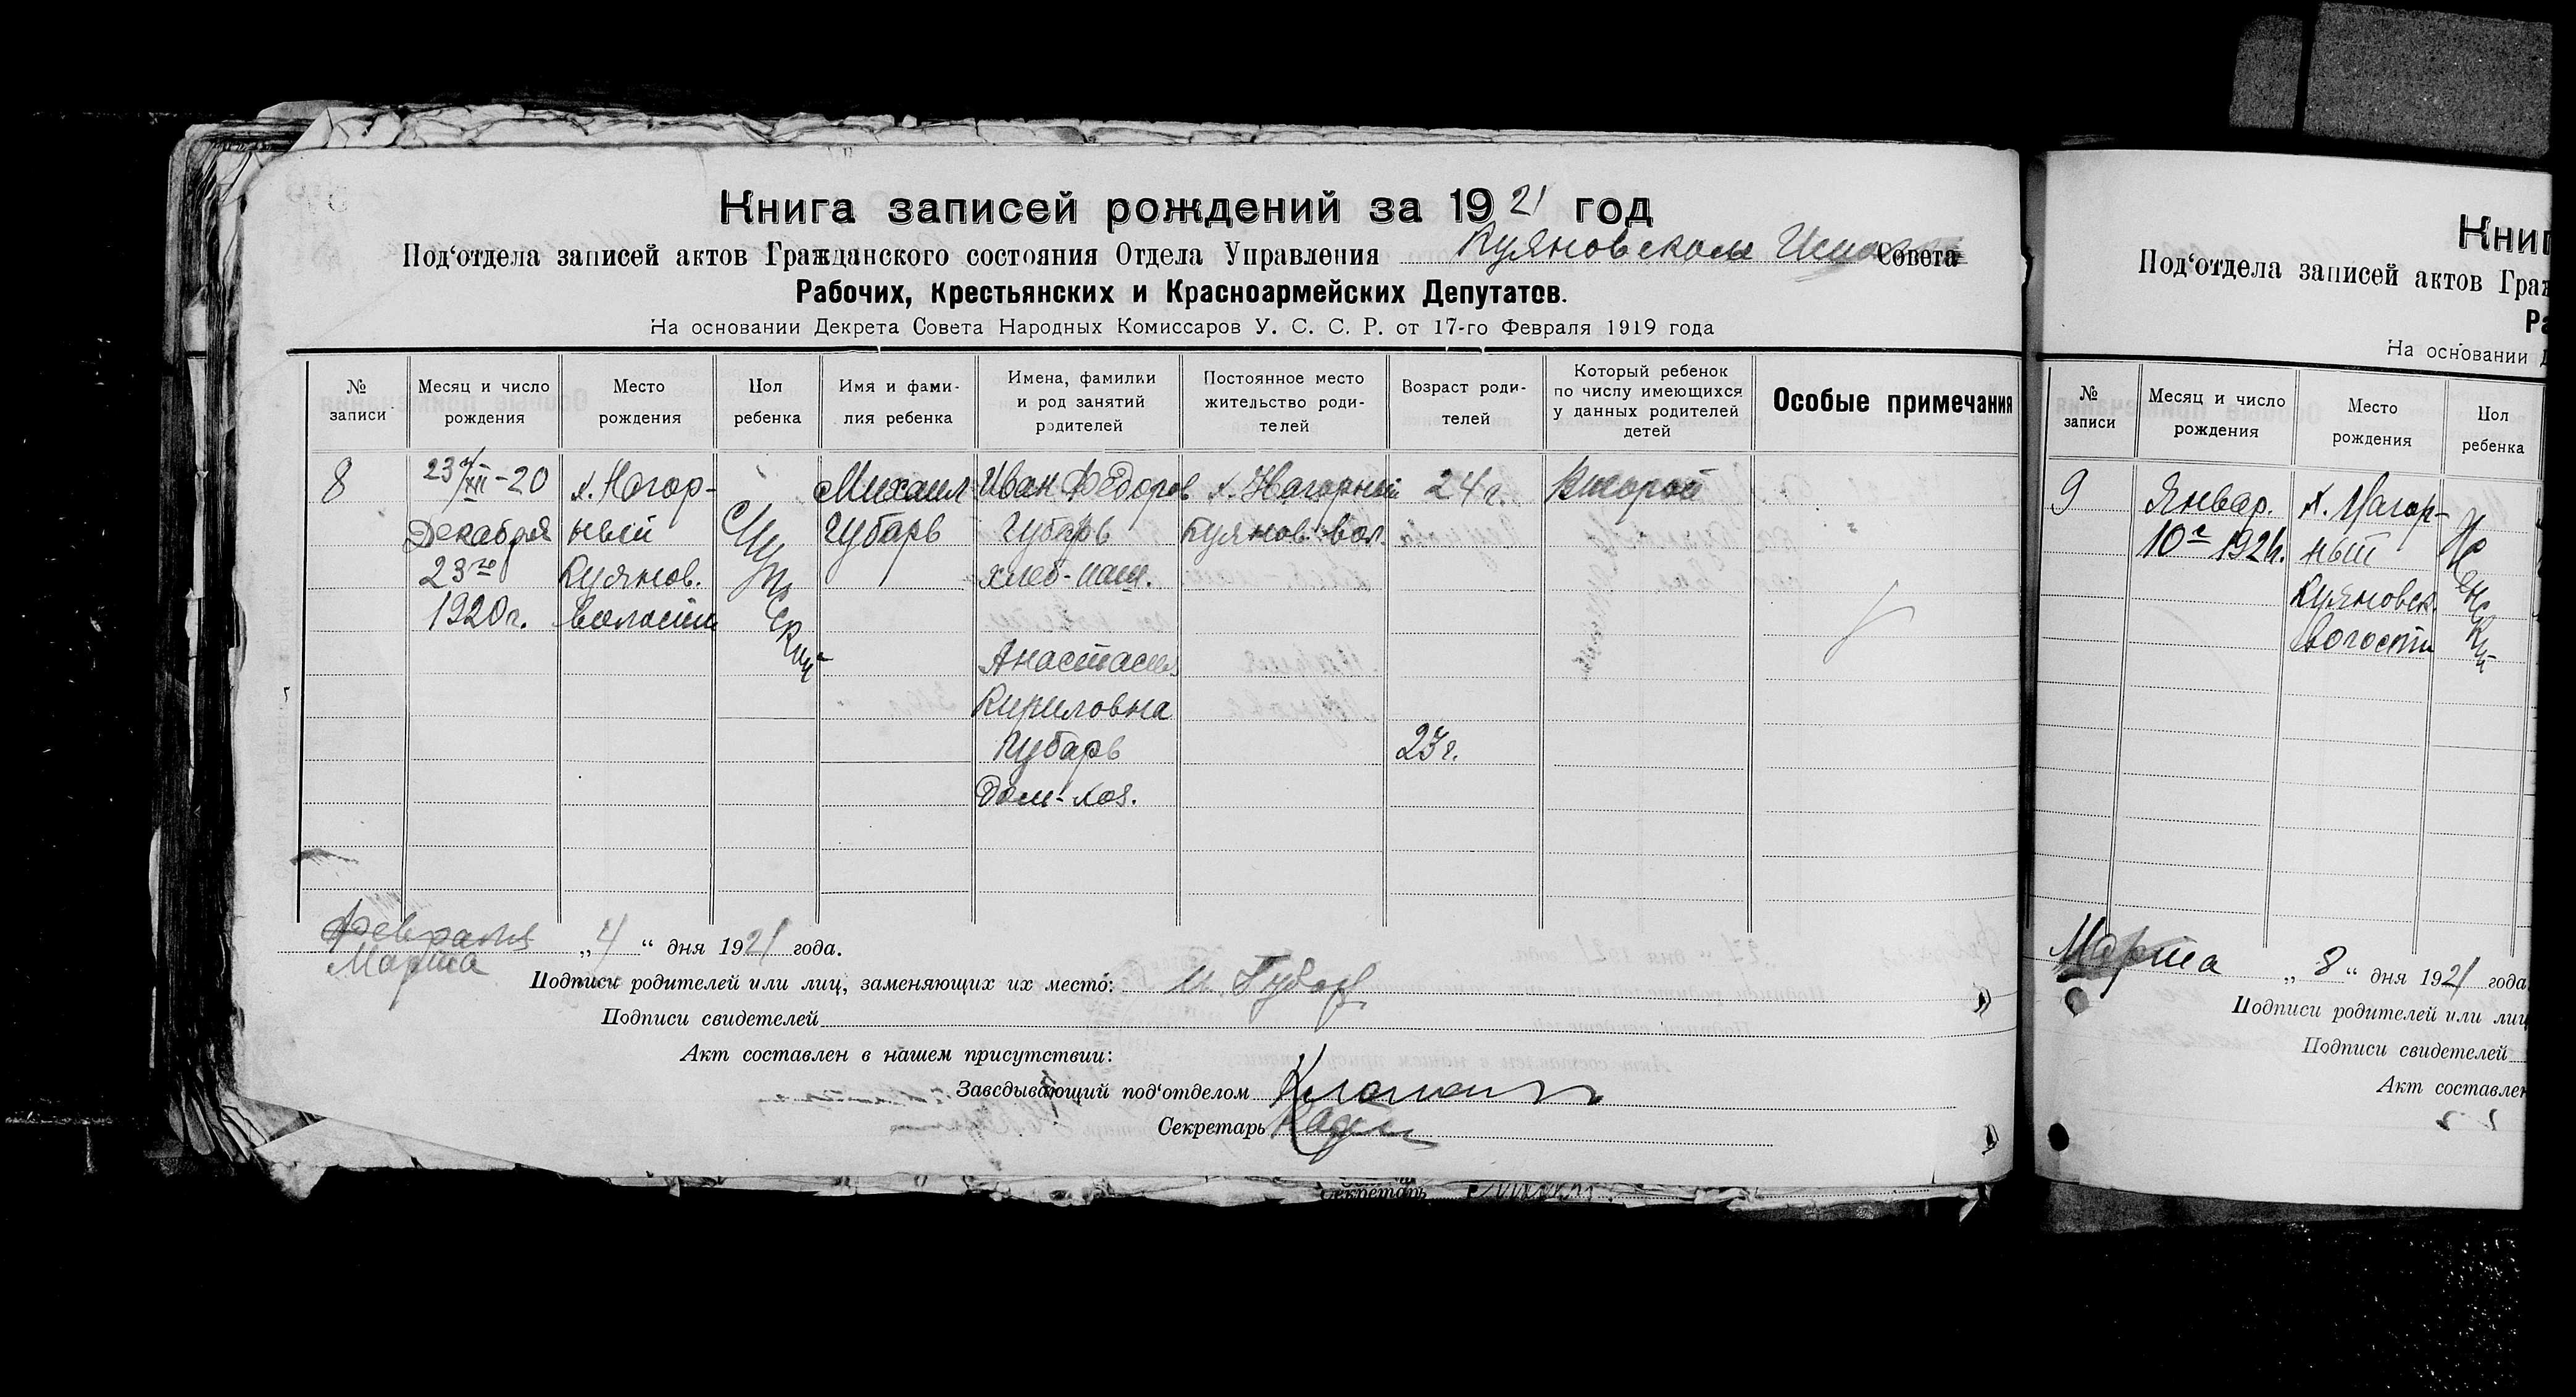 Книга записей рождений за 1921 год
Под‘отдела записей актов Гражданского состояния Отдела Управления Куяновском Совета
Рабочих, Крестьянских и Красноармейских Депутатов.
На основании Декрета Совета Народных Комиссаров У. С. С. Р. от 17-го Февраля 1919 года
№ записи
Месяц и число рождения
Место рождения
Пол ребенка
Имя и фамилия ребенка
Имена, фамилии и род занятий родителей
Постоянное место жительство родителей
Возраст родителей
Который ребенок по числу имеющихся у данных родителей детей
Особые примечания
8
23/XII-20
Декабря
23го
1920г.
х. Нагор-
ный
Куянов.
волости
Мужской
Михаил
Губарь
Иван Федоров
Губарь
хлеб-паш.
Анастасия
Кириловна
Губарь
Дом-хоз.
х. Нагорный
Куянов. вол.
24г.
23г.
Второй
Февраля
Марта „4“ дня 1921 года.
Подписи родителей или лиц, заменяющих их место: И. Губарь
Подписи свидетелей
Акт составлен в нашем присутствии:
Заведывающий под‘отделом
Секретарь
Секретарь
Книг
Под‘отдела записей актов Граж
Ра
На основании Д
№ записи
Месяц и число рождения
Место рождения
Пол ребенка
9
Январ.
10го 1921г.
х. Нагор-
ный
Куяновск.
волости
Женский
Марта „8“ дня 1921 года
Подписи родителей или лиц
Подписи свидетелей
Акт составлен